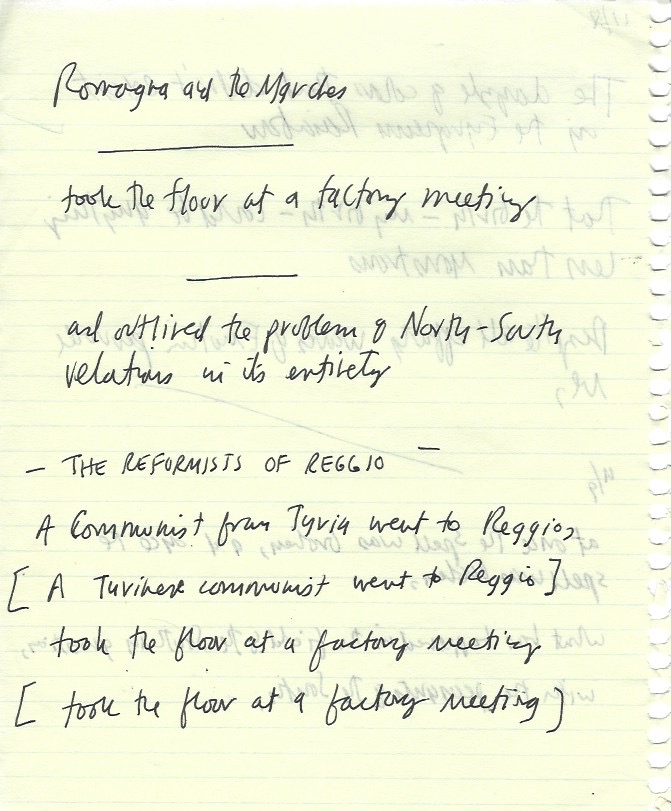 Romagna and the Marches
took the floor at a factory meeting
and outlined the problem of North-South
relations in its entirety
— THE REFORMISTS OF REGGIO —
A Communist from Turin went to Reggio,
[A Turinese communist went to Reggio]
took the floor at a factory meeting
[took the floor at a factory meeting]